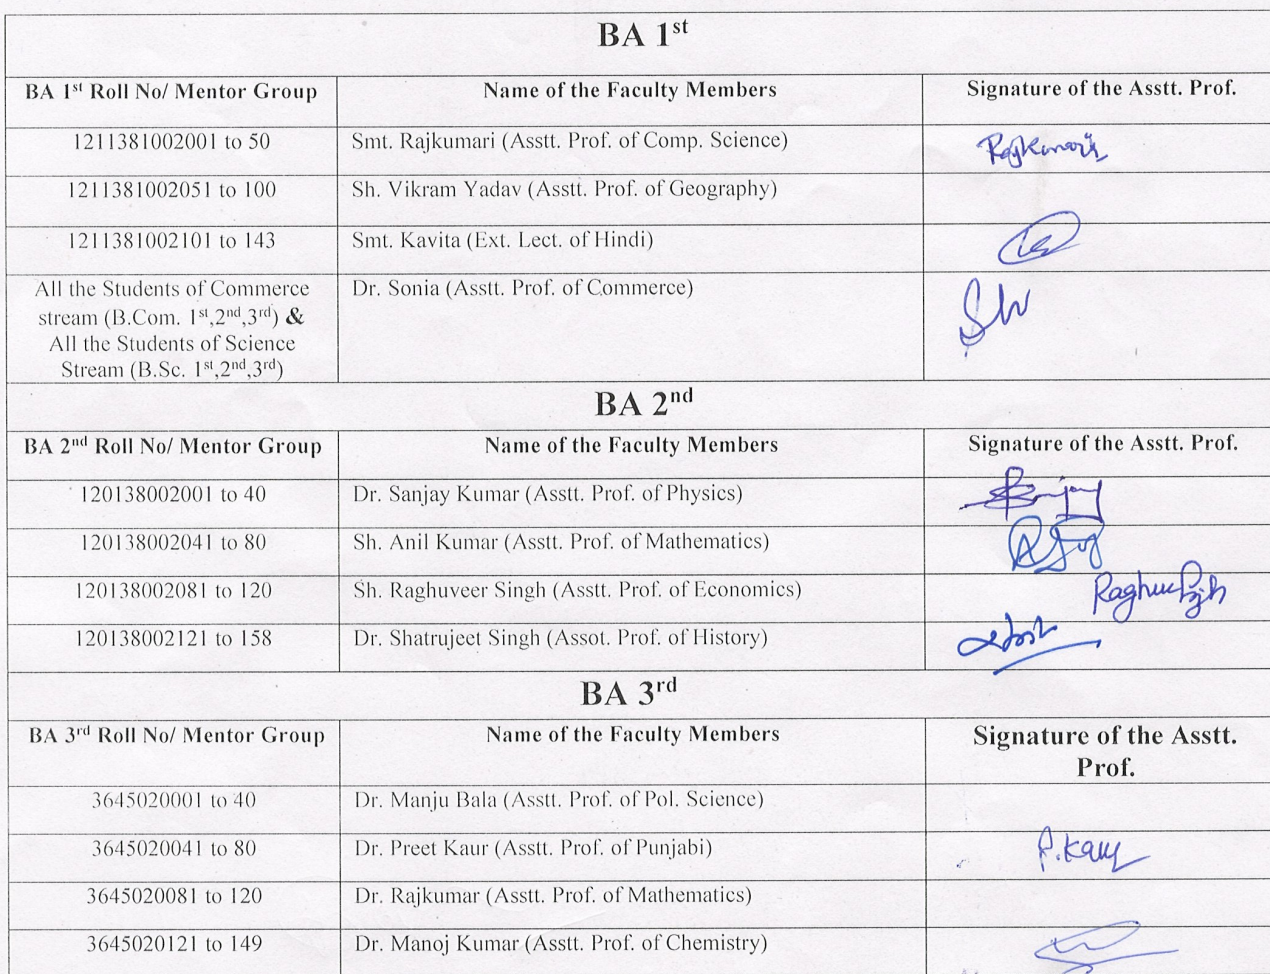 BA 1st
BA 1st Roll No/ Mentor Group Name of the Faculty Members Signature of the Asstt. Prof.
1211381002001 to 50 Smt. Rajkumari (Asstt. Prof. of Comp. Science) Rajkumari
1211381002051 to 100 Sh. Vikram Yadav (Asstt. Prof. of Geography)
1211381002101 to 143 Smt. Kavita (Ext. Lect. of Hindi)
All the Students of Commerce Dr. Sonia (Asstt. Prof. of Commerce)
stream (B.Com. 1st,2nd,3rd) &
All the Students of Science
Stream (B.Sc. 1st,2nd,3rd)
BA 2nd
BA 2nd Roll No/ Mentor Group Name of the Faculty Members Signature of the Asstt. Prof.
120138002001 to 40 Dr. Sanjay Kumar (Asstt. Prof. of Physics) Sanjay
120138002041 to 80 Sh. Anil Kumar (Asstt. Prof. of Mathematics)
120138002081 to 120 Sh. Raghuveer Singh (Asstt. Prof. of Economics)
120138002121 to 158 Dr. Shatrujeet Singh (Assot. Prof. of History)
BA 3rd
BA 3rd Roll No/ Mentor Group Name of the Faculty Members Signature of the Asstt.
Prof.
3645020001 to 40 Dr. Manju Bala (Asstt. Prof. of Pol. Science)
3645020041 to 80 Dr. Preet Kaur (Asstt. Prof. of Punjabi) P.Kaur
3645020081 to 120 Dr. Rajkumar (Asstt. Prof. of Mathematics)
3645020121 to 149 Dr. Manoj Kumar (Asstt. Prof. of Chemistry)